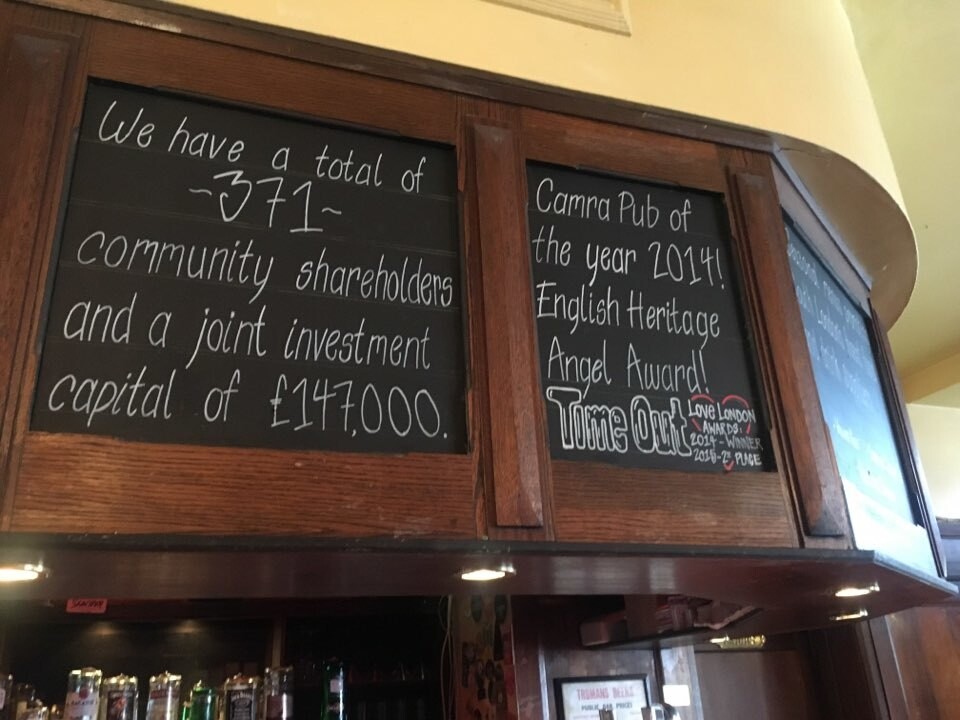 We have a total of
~371~
community shareholders
and a joint investment
capital of £147,000.
Camra Pub of
the year 2014!
English Heritage
Angel Award!
Time Out LOVE LONDON
AWARDS:
2014 - WINNER
2015 - 2ND PLACE
TRUMANS BEERS
PUBLIC BAR PRICES